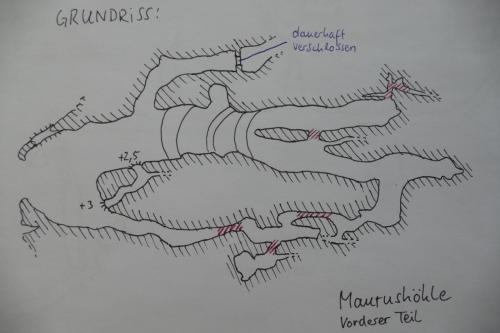 GRUNDRISS:
dauerhaft
verschlossen
+2,5
+3
Vorderer Teil